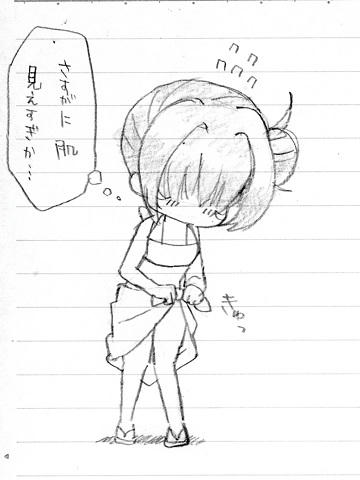 さすがに 肌
見えすぎか…
きゅっ